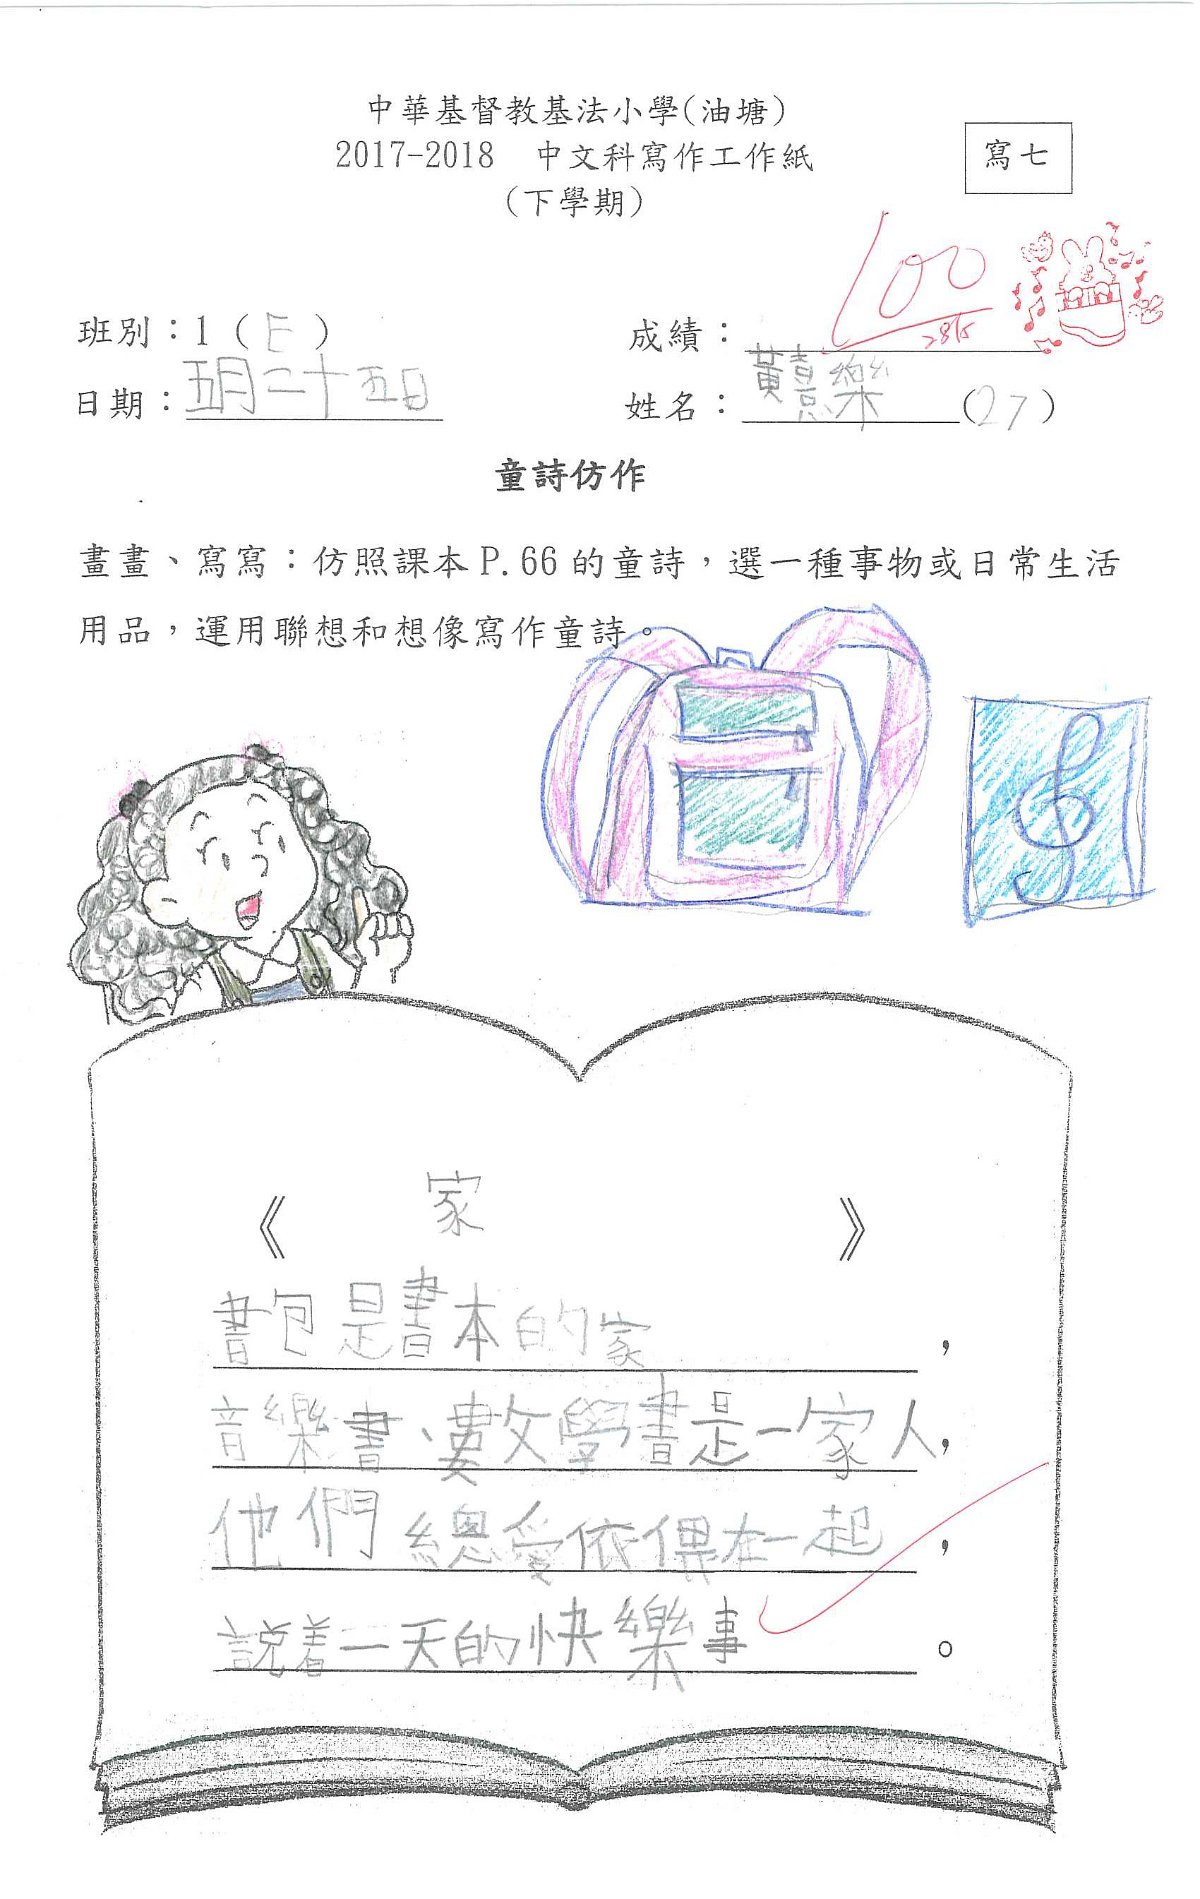 中華基督教基法小學(油塘)
2017-2018 中文科寫作工作紙
寫七
(下學期)
100
28/5
班別：1（E）
成績：
日期：五月二十五日
姓名：黃憙樂（27）
童詩仿作
畫畫、寫寫：仿照課本P.66的童詩，選一種事物或日常生活
用品，運用聯想和想像寫作童詩。
《 家 》
書包是書本的家，
音樂書、數學書是一家人，
他們總愛依偎在一起，
說着一天的快樂事。